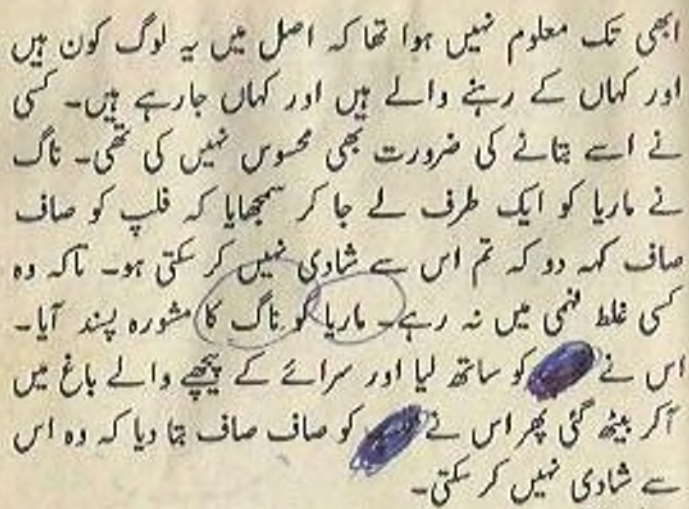 ابھی تک معلوم نہیں ہوا تھا کہ اصل میں یہ لوگ کون ہیں
اور کہاں کے رہنے والے ہیں اور کہاں جارہے ہیں۔ کسی
نے اسے بتانے کی ضرورت بھی محسوس نہیں کی تھی۔ ناگ
نے ماریا کو ایک طرف لے جا کر سمجھایا کہ فلپ کو صاف
صاف کہہ دو کہ تم اس سے شادی نہیں کر سکتی ہو۔ تاکہ وہ
کسی غلط فہمی میں نہ رہے۔ ماریا کو ناگ کا مشورہ پسند آیا۔
اس نے کو ساتھ لیا اور سرائے کے پیچھے والے باغ میں
آکر بیٹھ گئی پھر اس نے کو صاف صاف بتا دیا کہ وہ اس
سے شادی نہیں کر سکتی۔